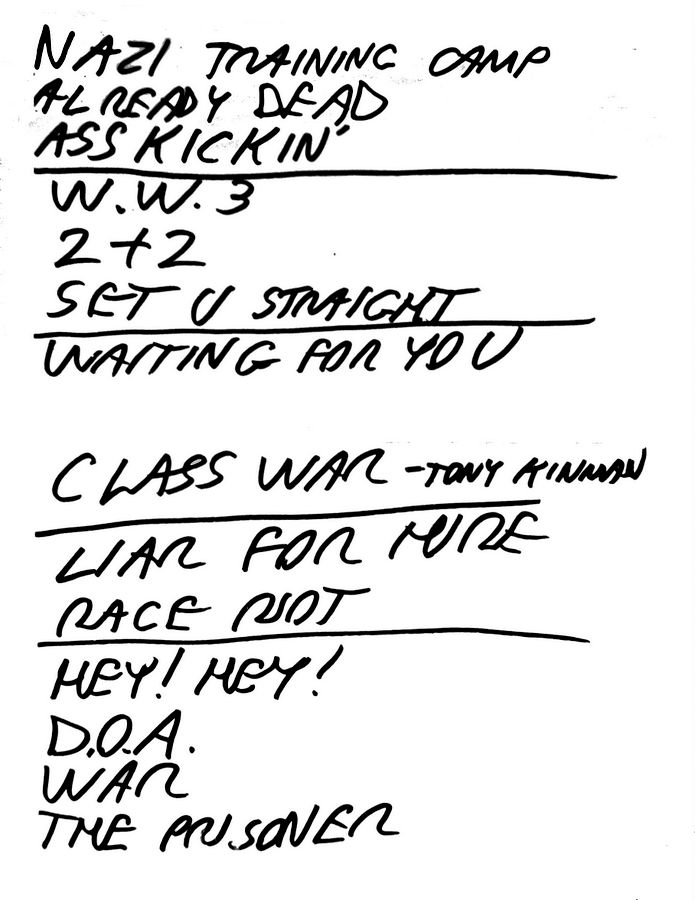 NAZI TRAINING CAMP
ALREADY DEAD
ASS KICKIN'
W.W.3
2+2
SET U STRAIGHT
WAITING FOR YOU
CLASS WAR - TONY KINMAN
LIAR FOR HIRE
RACE RIOT
HEY! HEY!
D.O.A.
WAR
THE PRISONER